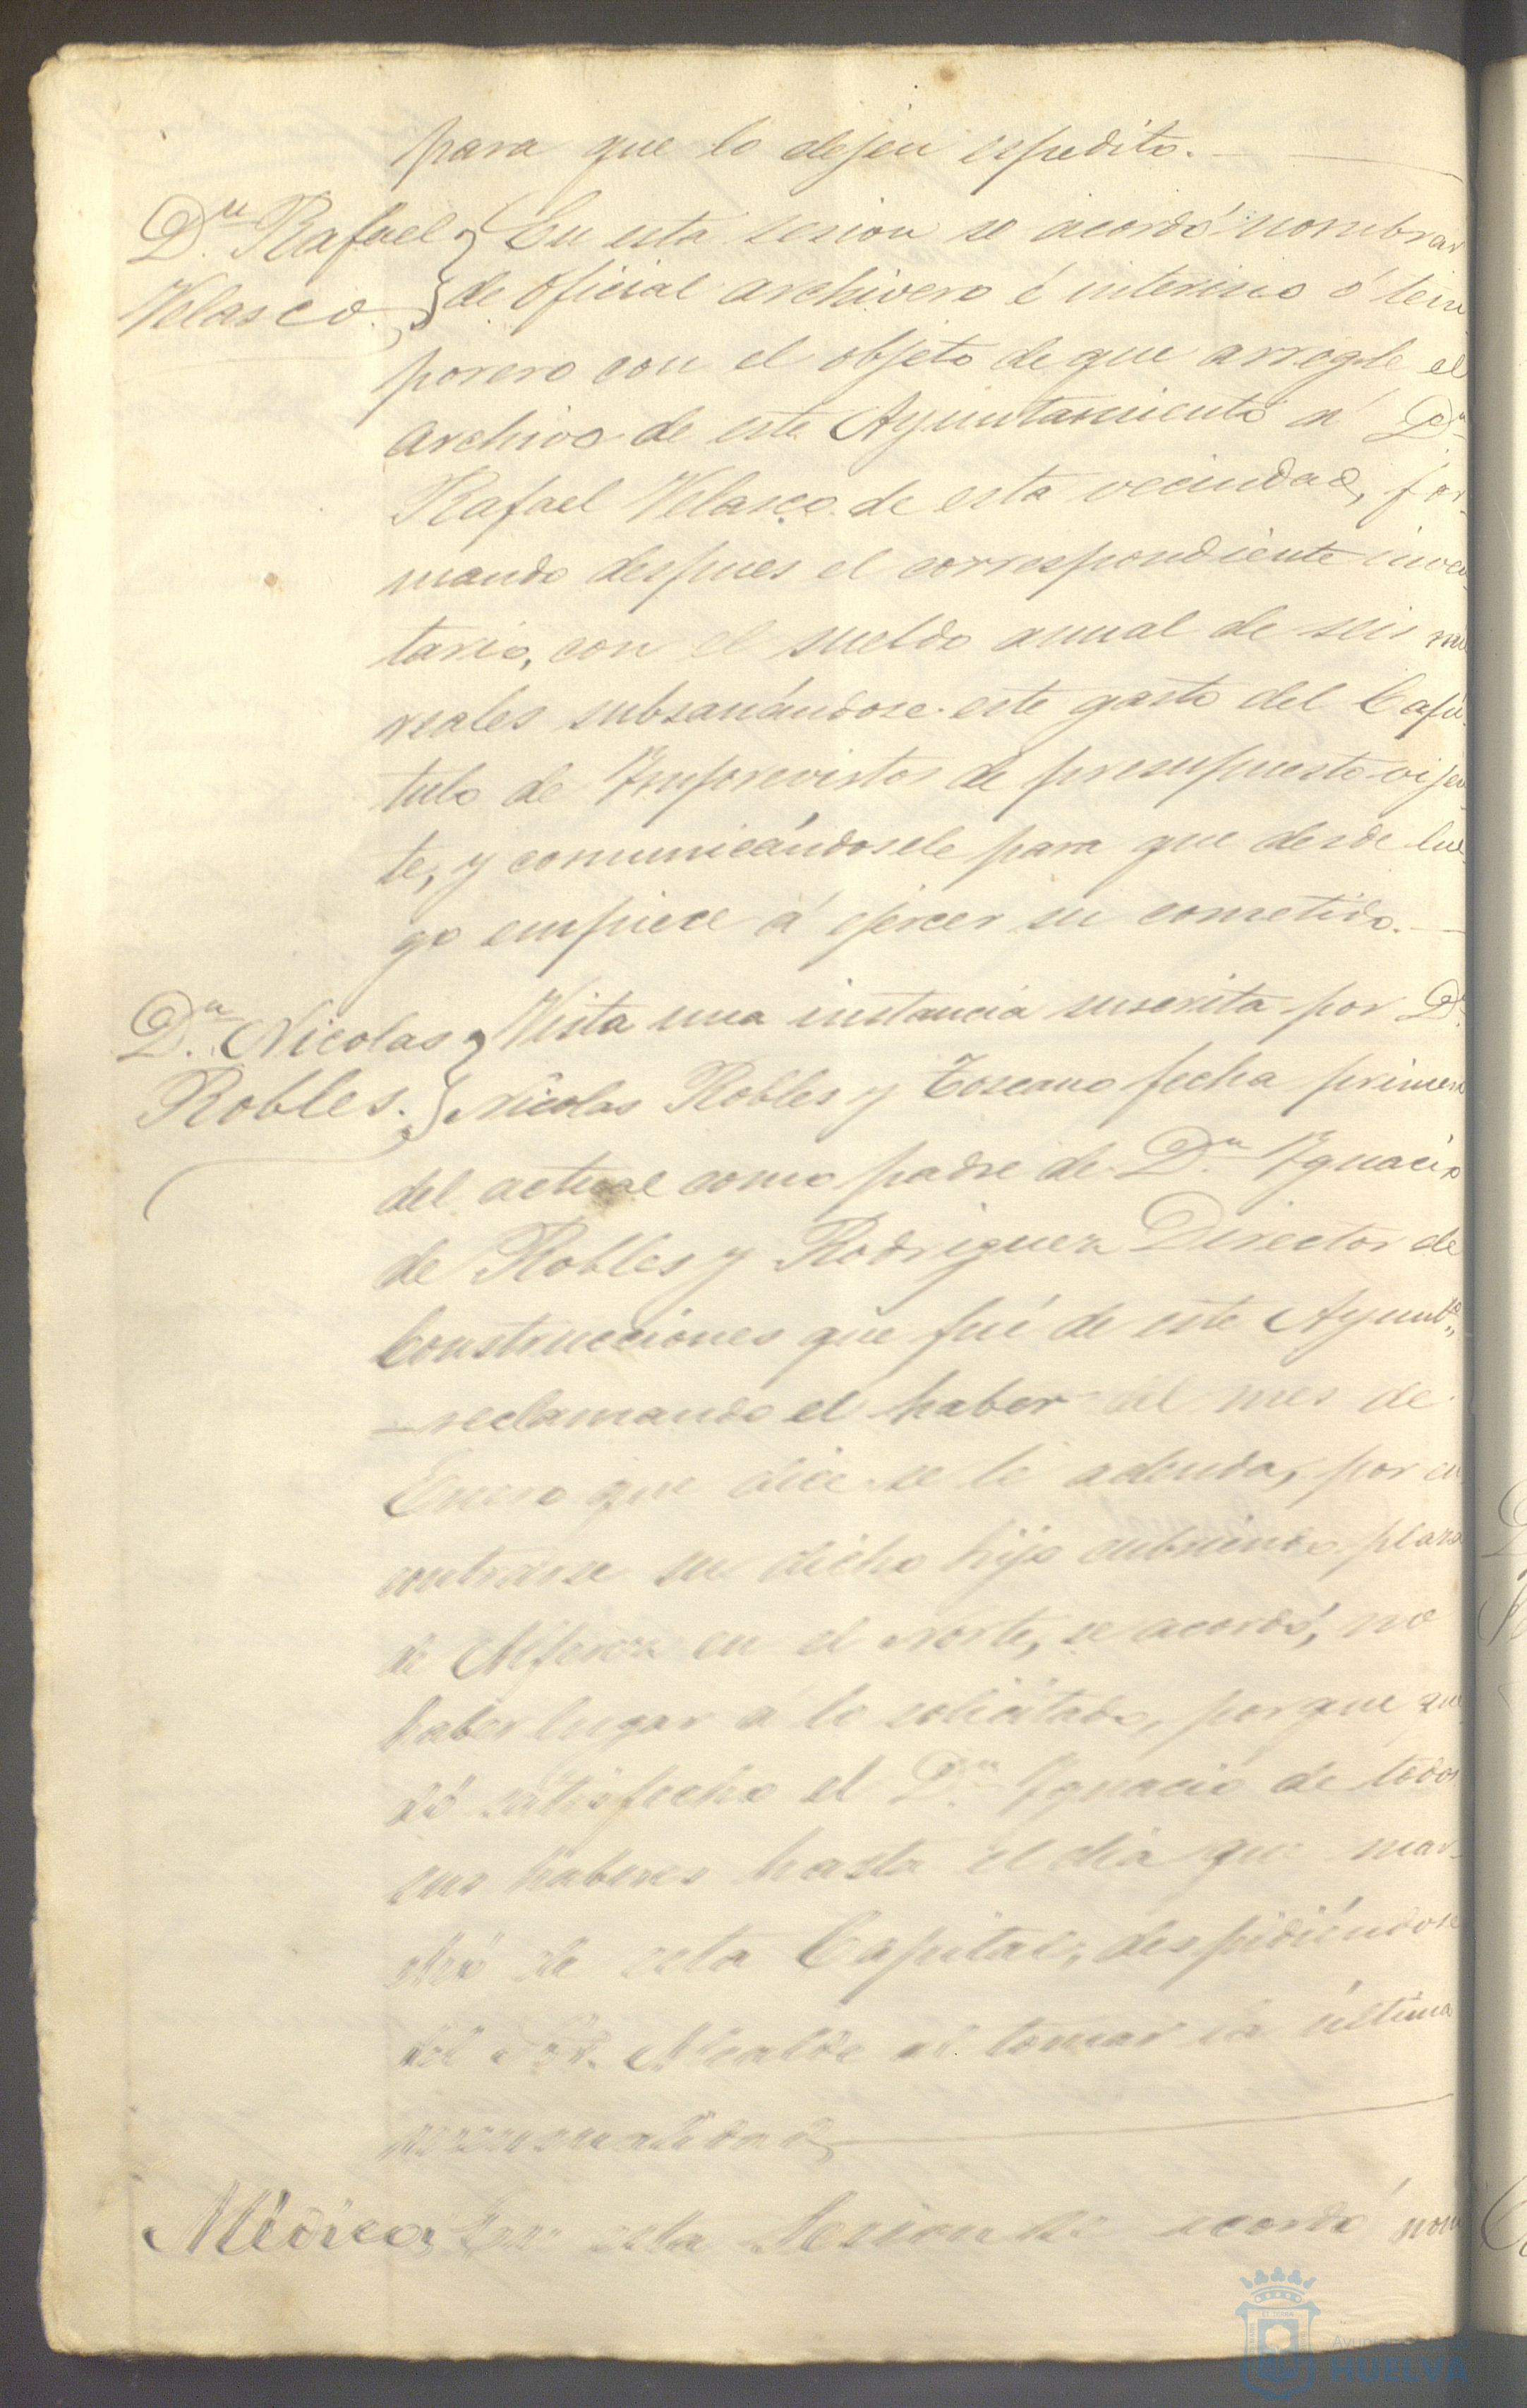 para que lo dejen espedito.
Dn. Rafael
Velasco.
En esta sesion se acordó nombrar
de oficial archivero é interino ó tem
porero con el objeto de que arregle el
archivo de este Ayuntamiento á Dn
Rafael Velasco de esta vecindad, for-
mando despues el correspondiente inven
tario, con el sueldo anual de seis mil
reales subsanándose este gasto del Capí-
tulo de Imprevistos de presupuesto vijen
te, y comunicándosele para que desde lue-
go empiece á ejercer su cometido.
Dn. Nicolas
Robles.
Vista una instancia suscrita por Dn.
Nicolas Robles y Toscano fecha primero
del actual como padre de Dn. Ygnacio
de Robles y Rodriguez Director de
Construcciones que fué de este Ayunto.
reclamando el haber del mes de
Enero que dice se le adeuda, por en
contrarse su dicho hijo cubriendo plaza
de Alferez en el Norte, se acordó, no
haber lugar á lo solicitado, porque que
dó satisfecho el Dn. Ygnacio de todos
sus haberes hasta el dia que mar-
chó de esta Capital, despidiéndose
del Sor. Alcalde al tomar la última
mensualidad
Médico
En esta Sesion se acordó nom
Ayun
HUELVA